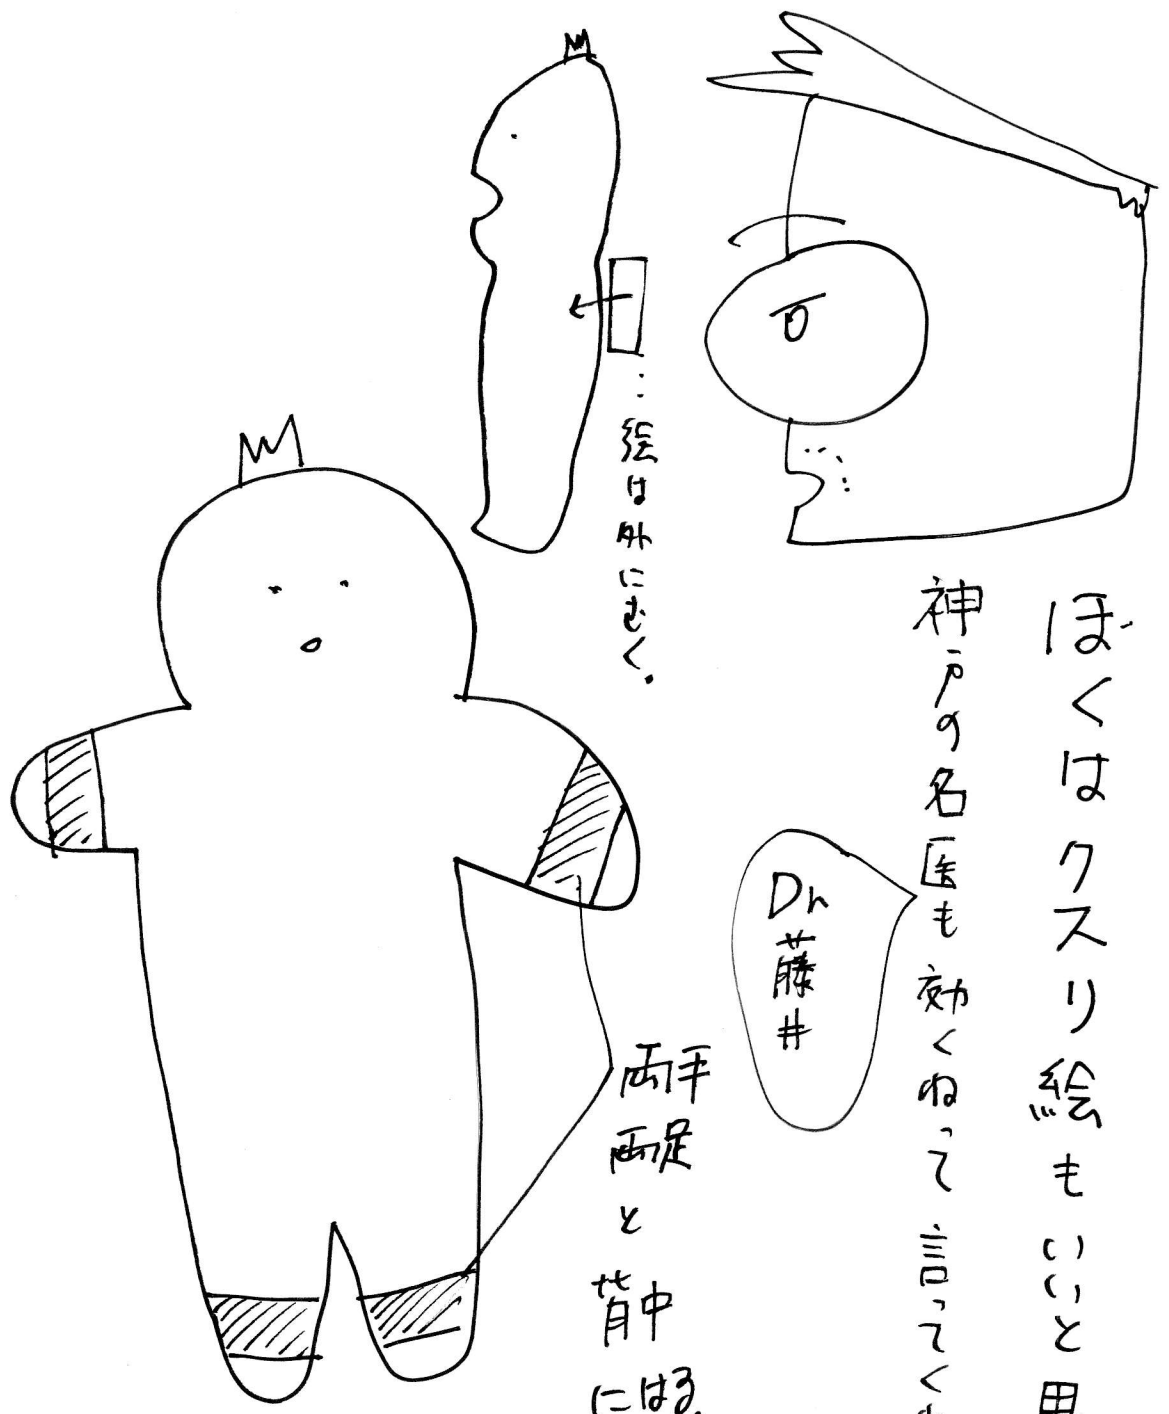 ぼくはクスリ絵もいいと思
神戸の名医も効くねって言ってくれ
Dr藤井
…絵は外にむく.
両手
両足
と
背中
にはる.